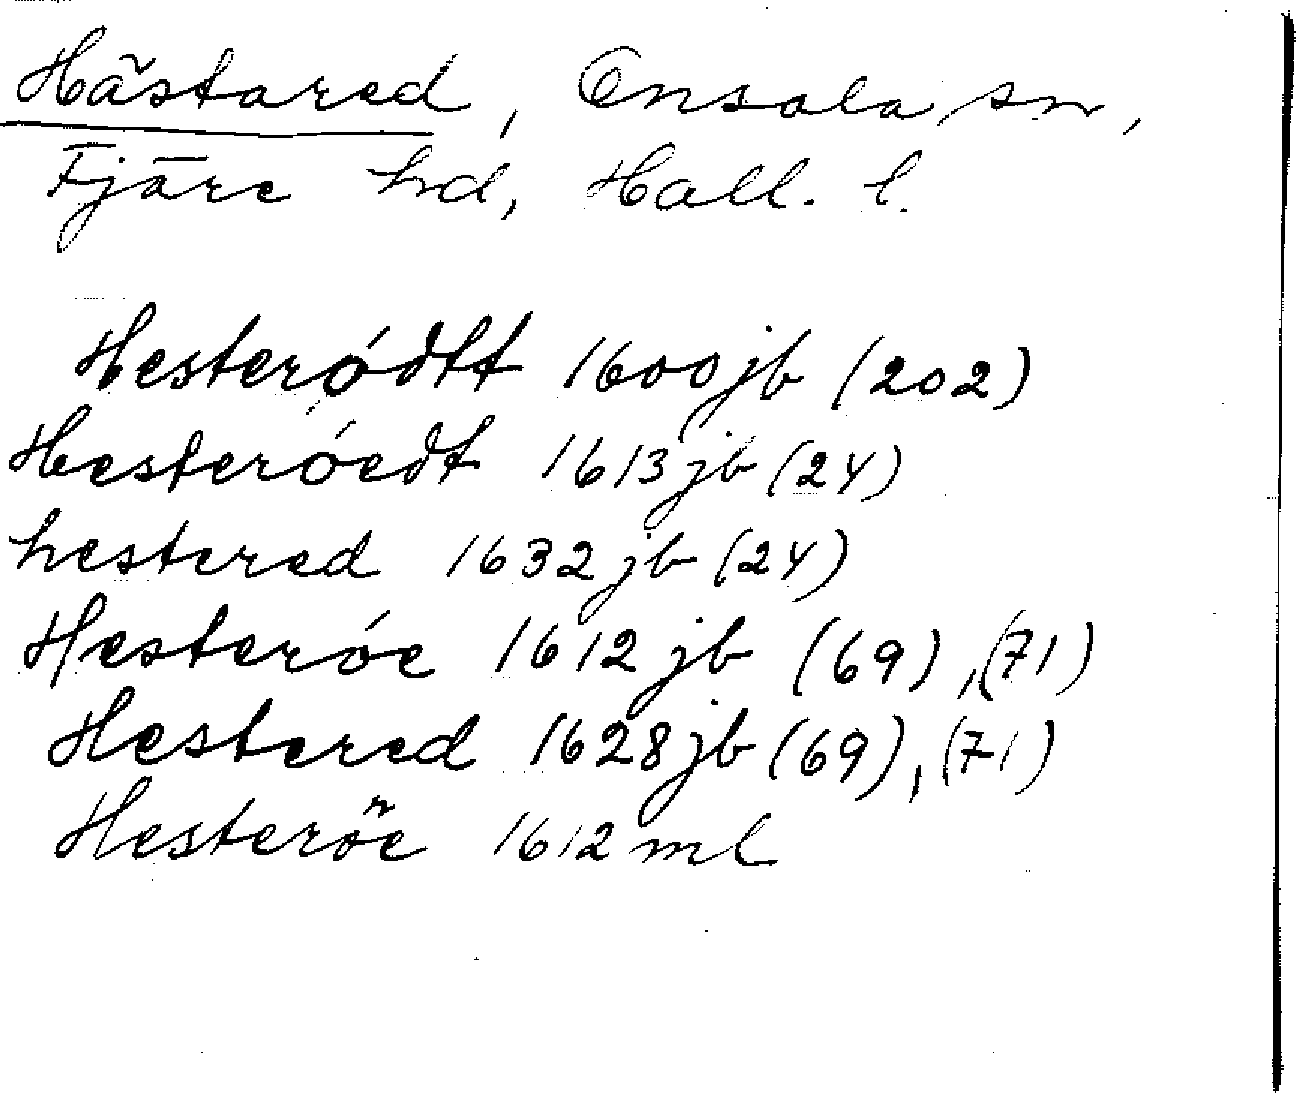 Hästared, Onsala sn,
Fjäre hd, Hall. l.
Hesterødtt 1600 jb (202)
Hesteróedt 1613 jb (24)
hestered 1632 jb (24)
Hesteróe 1612 jb (69), (71)
Hestered 1628 jb (69), (71)
Hesteröe 1612 ml